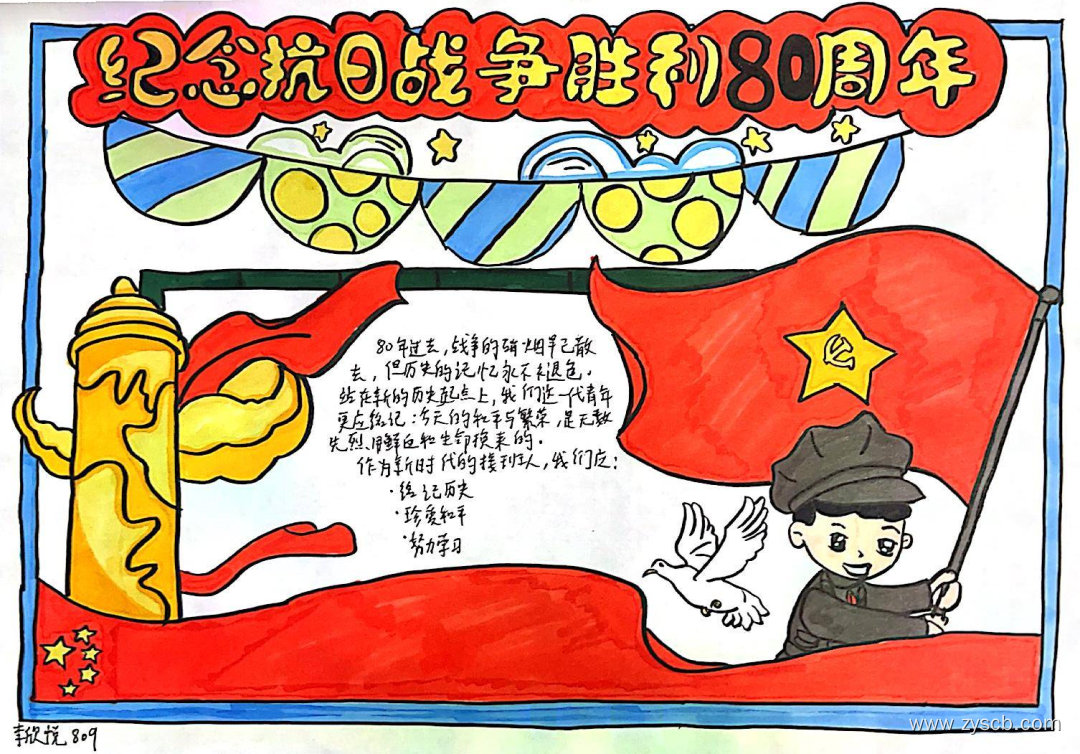 纪念抗日战争胜利80周年
80年过去，战争的硝烟早已散
去，但历史的记忆永不褪色。
站在新的历史起点上，我们这一代青年
更应铭记：今天的和平与繁荣，是无数
先烈用鲜血和生命换来的。
作为新时代的接班人，我们应：
·铭记历史
·珍爱和平
·努力学习
李欣悦 809
www.zyscb.com